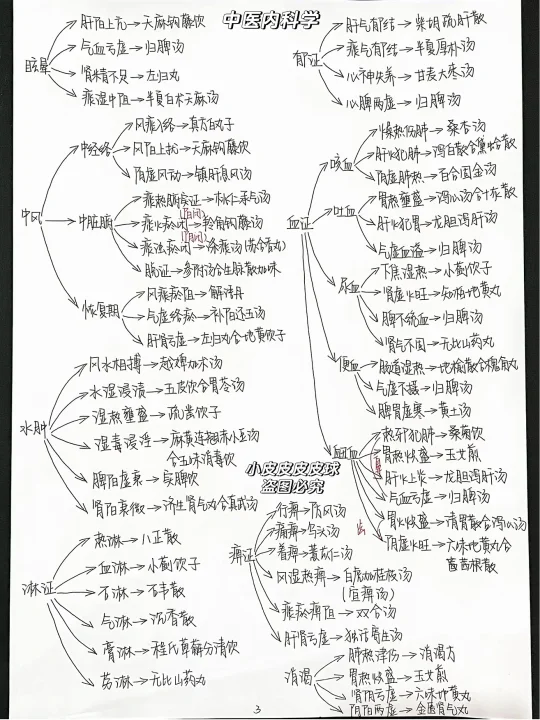 中医内科学
眩晕
肝阳上亢→天麻钩藤饮
气血亏虚→归脾汤
肾精不足→左归丸
痰湿中阻→半夏白术天麻汤
中风
中经络
风痰入络→真方白丸子
风阳上扰→天麻钩藤饮
阴虚风动→镇肝息风汤
中脏腑
痰热腑实证→桃仁承气汤
痰火瘀闭→羚角钩藤汤
(阳闭)
痰浊瘀闭→涤痰汤(苏合香丸)
(阴闭)
脱证→参附汤合生脉散加味
恢复期
风痰瘀阻→解语丹
气虚络瘀→补阳还五汤
肝肾亏虚→左归丸合地黄饮子
水肿
风水相搏→越婢加术汤
水湿浸渍→五皮饮合胃苓汤
湿热壅盛→疏凿饮子
湿毒浸淫→麻黄连翘赤小豆汤
合五味消毒饮
脾阳虚衰→实脾饮
肾阳衰微→济生肾气丸合真武汤
淋证
热淋→八正散
血淋→小蓟饮子
石淋→石韦散
气淋→沉香散
膏淋→程氏萆薢分清饮
劳淋→无比山药丸
郁证
肝气郁结→柴胡疏肝散
痰气郁结→半夏厚朴汤
心神失养→甘麦大枣汤
心脾两虚→归脾汤
血证
咳血
燥热伤肺→桑杏汤
肝火犯肺→泻白散合黛蛤散
阴虚肺热→百合固金汤
吐血
胃热壅盛→泻心汤合十灰散
肝火犯胃→龙胆泻肝汤
气虚血溢→归脾汤
尿血
下焦湿热→小蓟饮子
肾虚火旺→知柏地黄丸
脾不统血→归脾汤
肾气不固→无比山药丸
便血
肠道湿热→地榆散合槐角丸
气虚不摄→归脾汤
脾胃虚寒→黄土汤
热邪犯肺→桑菊饮
胃热炽盛→玉女煎
肝火上炎→龙胆泻肝汤
气血亏虚→归脾汤
胃火炽盛→清胃散合泻心汤
阴虚火旺→六味地黄丸合
茜根散
小皮皮皮皮球
盗图必究
痹证
行痹→防风汤
痛痹→乌头汤
着痹→薏苡仁汤
风湿热痹→白虎加桂枝汤
(宣痹汤)
痰瘀痹阻→双合汤
肝肾亏虚→独活寄生汤
消渴
肺热津伤→消渴方
胃热炽盛→玉女煎
肾阴亏虚→六味地黄丸
阴阳两虚→金匮肾气丸
3